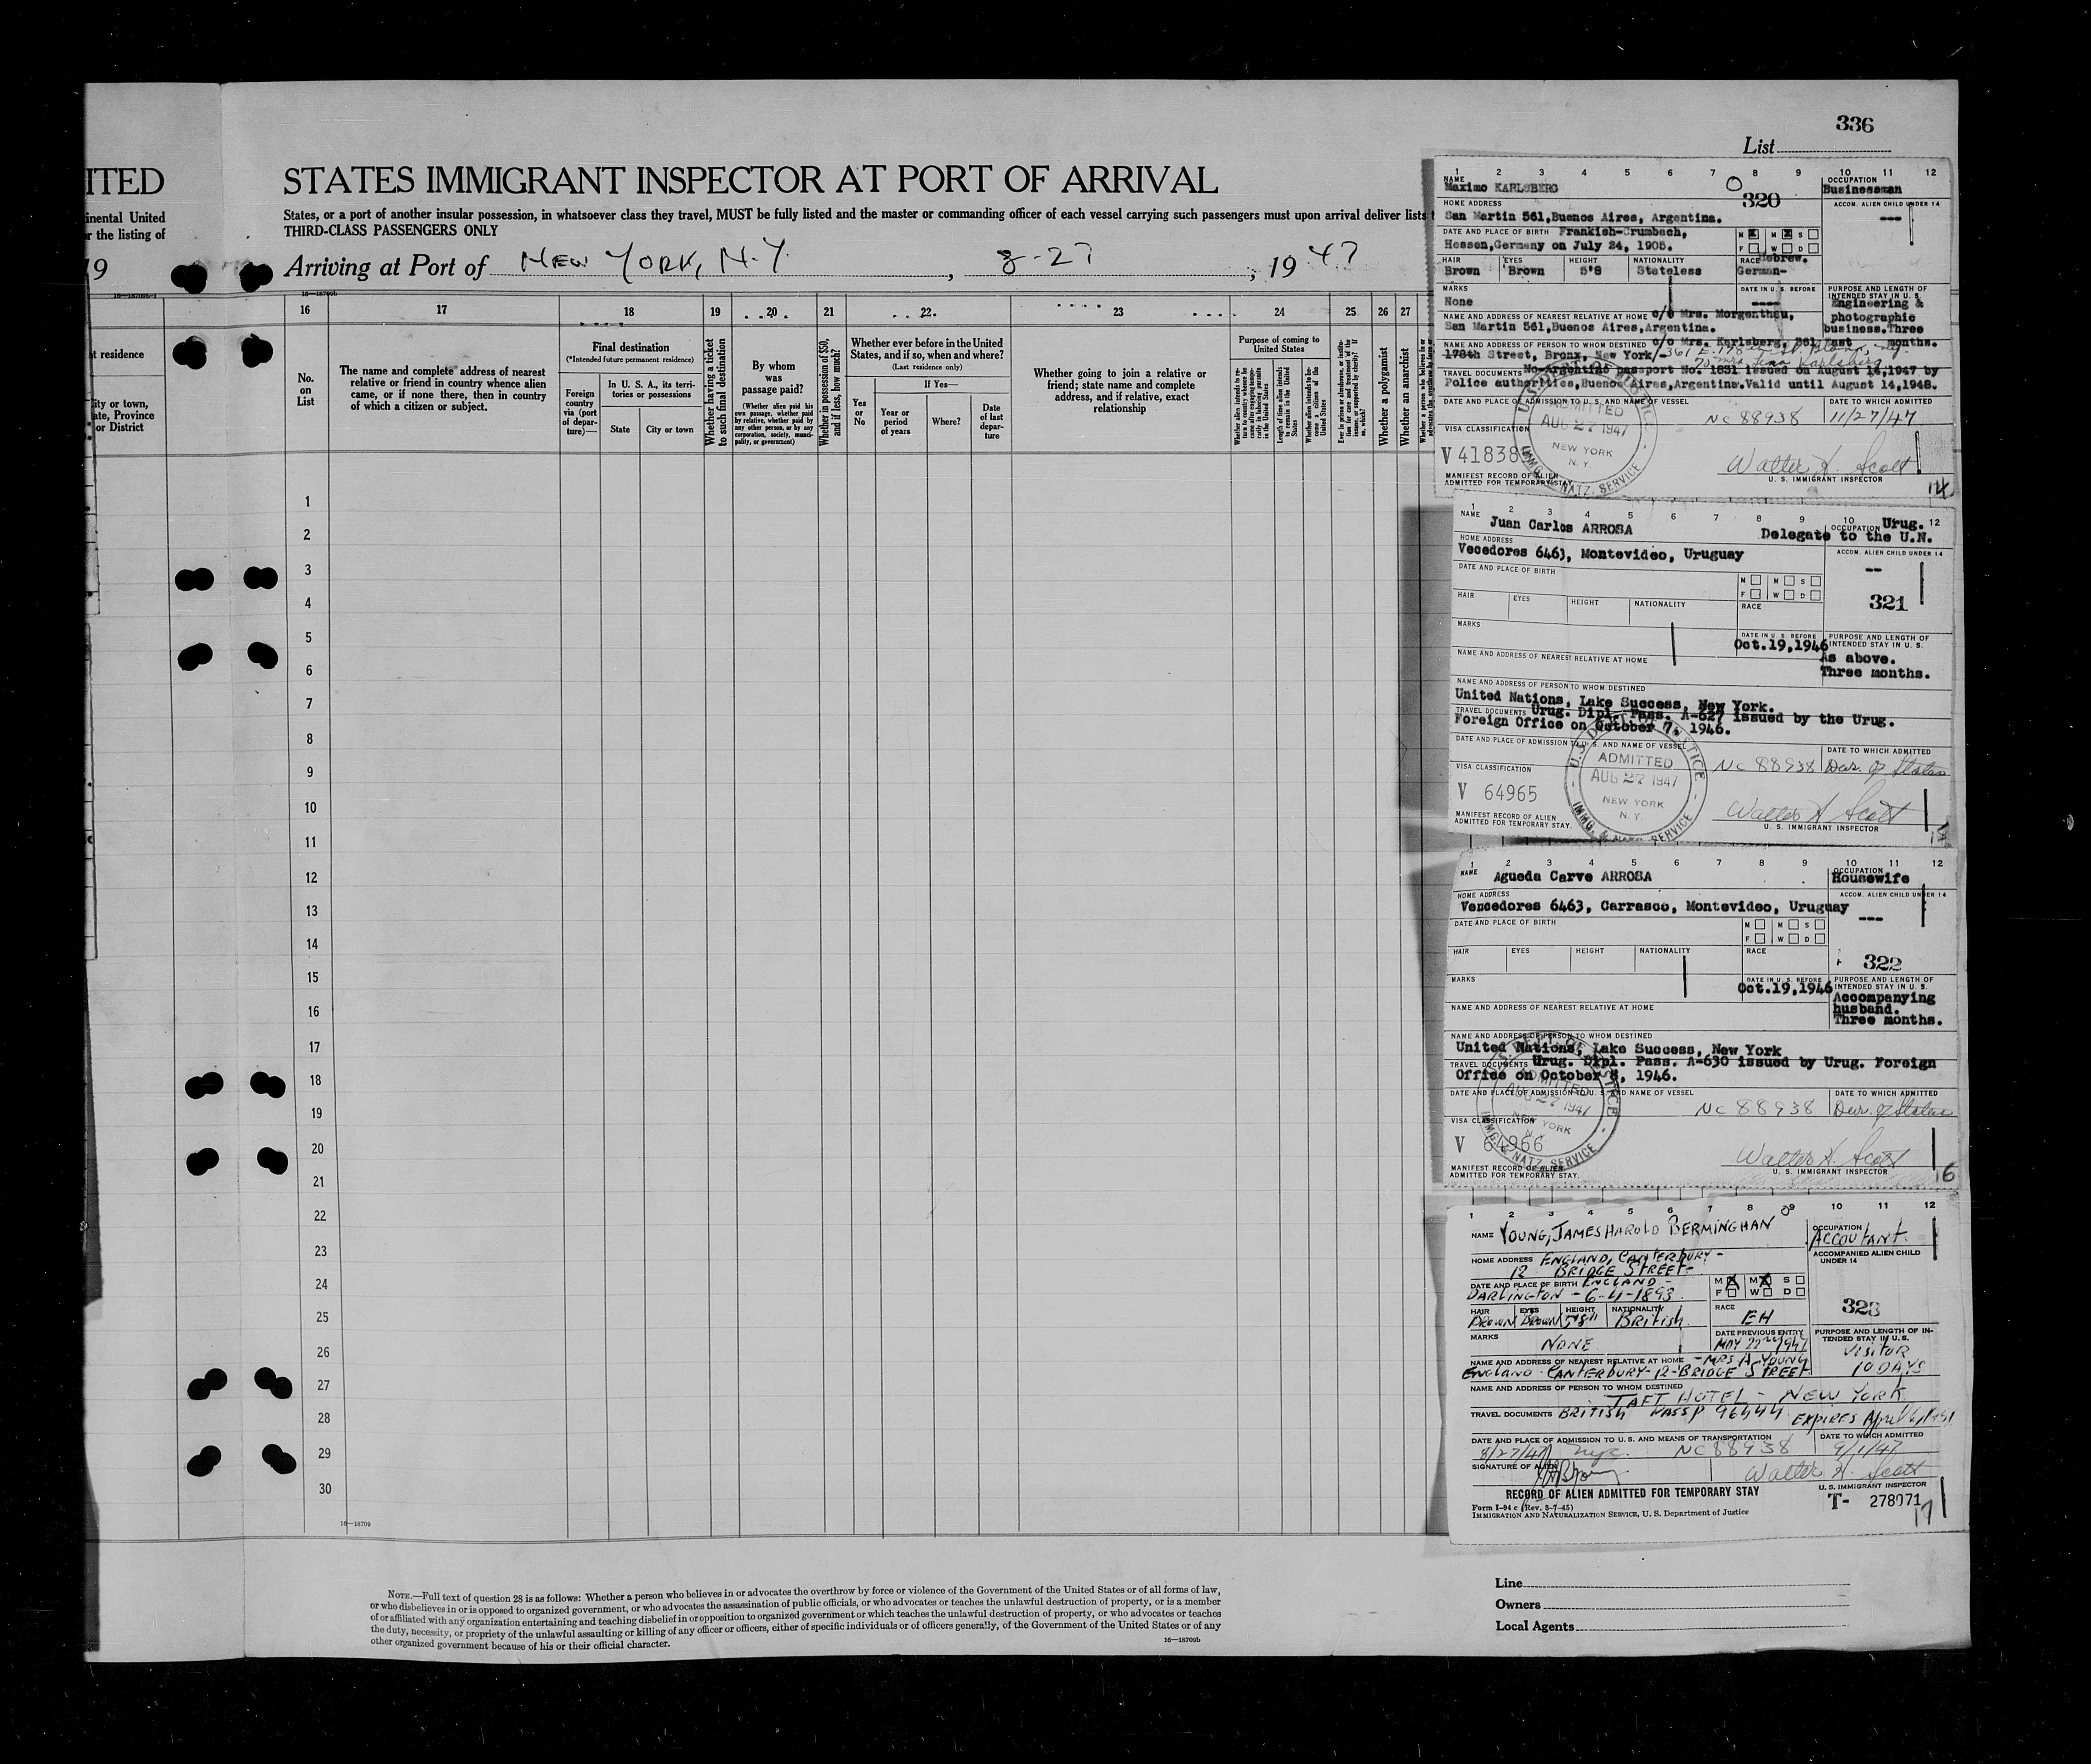 336
List
ITED
STATES IMMIGRANT INSPECTOR AT PORT OF ARRIVAL
inental United
r the listing of
States, or a port of another insular possession, in whatsoever class they travel, MUST be fully listed and the master or commanding officer of each vessel carrying such passengers must upon arrival deliver lists t
THIRD-CLASS PASSENGERS ONLY
19
Arriving at Port of NEW YORK, N.Y. , 8-27 , 19 47
16—18709b
16 17 18 19 20 21 22 23 24 25 26 27
t residence
ity or town,
ate, Province
or District
No.
on
List
The name and complete address of nearest
relative or friend in country whence alien
came, or if none there, then in country
of which a citizen or subject.
Final destination
(*Intended future permanent residence)
Foreign
country
via (port
of depar-
ture)—
In U. S. A., its terri-
tories or possessions
State
City or town
Whether having a ticket
to such final destination
By whom
was
passage paid?
(Whether alien paid his
own passage, whether paid
by relative, whether paid by
any other person, or by any
corporation, society, munici-
pality, or government)
Whether in possession of $50,
and if less, how much?
Whether ever before in the United
States, and if so, when and where?
(Last residence only)
If Yes—
Yes
or
No
Year or
period
of years
Where?
Date
of last
depar-
ture
Whether going to join a relative or
friend; state name and complete
address, and if relative, exact
relationship
Purpose of coming to
United States
Length of time alien intends to
remain in the United
States
Whether a polygamist
Whether an anarchist
1
2
3
4
5
6
7
8
9
10
11
12
13
14
15
16
17
18
19
20
21
22
23
24
25
26
27
28
29
30
16—18709
NOTE.—Full text of question 28 is as follows: Whether a person who believes in or advocates the overthrow by force or violence of the Government of the United States or of all forms of law,
or who disbelieves in or is opposed to organized government, or who advocates the assassination of public officials, or who advocates or teaches the unlawful destruction of property, or is a member
of or affiliated with any organization entertaining and teaching disbelief in or opposition to organized government or which teaches the unlawful destruction of property, or who advocates or teaches
the duty, necessity, or propriety of the unlawful assaulting or killing of any officer or officers, either of specific individuals or of officers generally, of the Government of the United States or of any
other organized government because of his or their official character.
16—18709b
1 2 3 4 5 6 7 8 9 10 11 12
NAME
Maximo KARLSBERG
320
OCCUPATION
Businessman
HOME ADDRESS
San Martin 561,Buenos Aires, Argentina.
ACCOM. ALIEN CHILD UNDER 14
---
DATE AND PLACE OF BIRTH Frankish-Crumbach,
Hessen,Germany on July 24, 1905.
M M S
F W D
HAIR EYES HEIGHT NATIONALITY RACE Hebrew.
Brown Brown 5'8 Stateless German-
MARKS
None
DATE IN U. S. BEFORE
----
PURPOSE AND LENGTH OF
INTENDED STAY IN U. S.
Engineering &
photographic
business.Three
months.
NAME AND ADDRESS OF NEAREST RELATIVE AT HOME c/o Mrs. Morgenthau,
San Martin 561,Buenos Aires,Argentina.
NAME AND ADDRESS OF PERSON TO WHOM DESTINED c/o Mrs. Karlsberg, 361 East
178th Street, Bronx, New York/
TRAVEL DOCUMENTS No-Argentino passport No. 1831 issued on August 14,1947 by
Police authorities,Buenos Aires,Argentine.Valid until August 14,1948.
DATE AND PLACE OF ADMISSION TO U. S. AND NAME OF VESSEL
NC 88938
DATE TO WHICH ADMITTED
11/27/47
ADMITTED
AUG 27 1947
NEW YORK
N. Y.
IMMG. & NATZ. SERVICE
VISA CLASSIFICATION
V 41838
Walter H. Scott
U. S. IMMIGRANT INSPECTOR
MANIFEST RECORD OF ALIEN
ADMITTED FOR TEMPORARY STAY.
14
1 2 3 4 5 6 7 8 9 10 12
NAME Juan Carlos ARROSA
OCCUPATION Urug.
Delegate to the U.N.
HOME ADDRESS
Vecedores 6463, Montevideo, Uruguay
ACCOM. ALIEN CHILD UNDER 14
--
DATE AND PLACE OF BIRTH
M M S
F W D
321
HAIR EYES HEIGHT NATIONALITY RACE
MARKS
DATE IN U. S. BEFORE
Oct.19,1946
PURPOSE AND LENGTH OF
INTENDED STAY IN U. S.
As above.
Three months.
NAME AND ADDRESS OF NEAREST RELATIVE AT HOME
NAME AND ADDRESS OF PERSON TO WHOM DESTINED
United Nations, Lake Success, New York.
TRAVEL DOCUMENTS Urug. Dipl. Pass. A-627 issued by the Urug.
Foreign Office on October 7, 1946.
DATE AND PLACE OF ADMISSION TO U. S. AND NAME OF VESSEL
NC 88938
DATE TO WHICH ADMITTED
Dur. of Status
ADMITTED
AUG 27 1947
NEW YORK
N. Y.
IMMG. & NATZ. SERVICE
VISA CLASSIFICATION
V 64965
Walter H Scott
U. S. IMMIGRANT INSPECTOR
MANIFEST RECORD OF ALIEN
ADMITTED FOR TEMPORARY STAY.
1 2 3 4 5 6 7 8 9 10 11 12
NAME Agueda Carve ARROSA
OCCUPATION
Housewife
HOME ADDRESS
Vencedores 6463, Carrasco, Montevideo, Uruguay
ACCOM. ALIEN CHILD UNDER 14
---
DATE AND PLACE OF BIRTH
M M S
F W D
322
HAIR EYES HEIGHT NATIONALITY RACE
MARKS
DATE IN U. S. BEFORE
Oct.19,1946
PURPOSE AND LENGTH OF
INTENDED STAY IN U. S.
Accompanying
husband.
Three months.
NAME AND ADDRESS OF NEAREST RELATIVE AT HOME
NAME AND ADDRESS OF PERSON TO WHOM DESTINED
United Nations, Lake Success, New York
TRAVEL DOCUMENTS Urug. Dipl. Pass. A-630 issued by Urug. Foreign
Office on October 8, 1946.
DATE AND PLACE OF ADMISSION TO U. S. AND NAME OF VESSEL
NC 88938
DATE TO WHICH ADMITTED
Dur. of Status
ADMITTED
AUG 27 1947
NEW YORK
N. Y.
IMMG. & NATZ. SERVICE
VISA CLASSIFICATION
V 64966
Walter H. Scott
U. S. IMMIGRANT INSPECTOR
MANIFEST RECORD OF ALIEN
ADMITTED FOR TEMPORARY STAY.
16
1 2 3 4 5 6 7 8 9 10 11 12
NAME YOUNG, JAMES HAROLD BERMINGHAN
OCCUPATION
ACCOUTANT.
HOME ADDRESS ENGLAND, CANTERBURY-
12 BRIDGE STREET-
ACCOMPANIED ALIEN CHILD
UNDER 14
DATE AND PLACE OF BIRTH ENGLAND-
DARLINGTON - 6-4-1893.
M M S
F W D
323
HAIR EYES HEIGHT NATIONALITY RACE
BROWN BROWN 5'8" BRITISH. EH
MARKS NONE
DATE PREVIOUS ENTRY
MAY 22nd 1947
PURPOSE AND LENGTH OF IN-
TENDED STAY IN U. S.
VISITOR
10 DAYS
NAME AND ADDRESS OF NEAREST RELATIVE AT HOME -MRS A. YOUNG
ENGLAND-CANTERBURY-12-BRIDGE STREET
NAME AND ADDRESS OF PERSON TO WHOM DESTINED
TAFT HOTEL - NEW YORK
TRAVEL DOCUMENTS BRITISH PASSP 96444 EXPIRES April
DATE AND PLACE OF ADMISSION TO U. S. AND MEANS OF TRANSPORTATION
8/27/47 nyc. NC 88938
DATE TO WHICH ADMITTED
9/1/47
SIGNATURE OF ALIEN
Walter H. Scott
U. S. IMMIGRANT INSPECTOR
RECORD OF ALIEN ADMITTED FOR TEMPORARY STAY
T- 278071
Form I-94 c (Rev. 3-7-45)
IMMIGRATION AND NATURALIZATION SERVICE, U. S. Department of Justice
17
Line
Owners
Local Agents